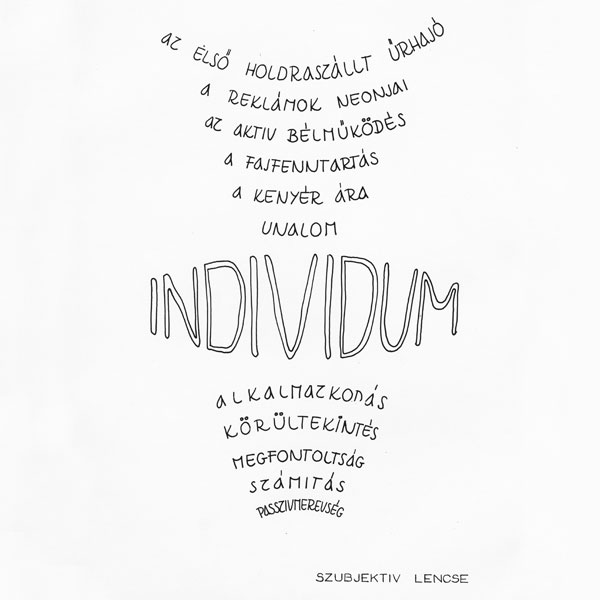 az ÉLSŐ HOLDRaSZÁLLT ŰRHAJÓ
a REKLÁMOK NEONJAI
az AKTIV BÉLMŰKÖDÉS
a FAJFENNTARTÁS
a KENYÉR ÁRA
UNALOM
INDIVIDUM
aLKALMAZKODÁS
KÖRÜLTEKINTÉS
MEGFONTOLTSÁG
SZÁMITÁS
PASSZIVMEREVSÉG
SZUBJEKTIV LENCSE